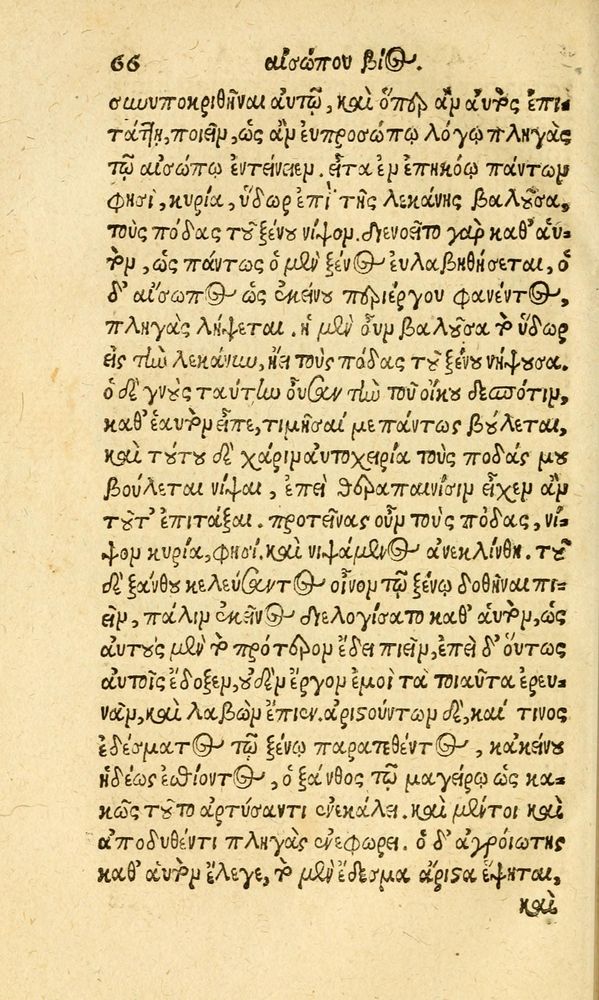 66 αἰσώπου βίος.
συνυποκριθῆναι αὐτῷ, καὶ ὅπερ ἂν αὐτὸς ἐπι-
τάττῃ, ποιεῖν, ὡς ἂν εὐπροσώπῳ λόγῳ πληγὰς
τῷ αἰσώπῳ ἐντείνειεν. εἶτα ἐν ἐπηκόῳ πάντων
φησὶ, κυρία, ὕδωρ ἐπὶ τῆς λεκάνης βαλοῦσα,
τοὺς πόδας τοῦ ξένου νίψον. διενοεῖτο γὰρ καθ' αὑ-
τὸν, ὡς πάντως ὁ μὲν ξένος εὐλαβηθήσεται, ὁ
δ' αἴσωπος ὡς ἐκείνου περιέργου φανέντος,
πληγὰς λήψεται. ἡ μὲν οὖν βαλοῦσα τὸ ὕδωρ
εἰς τὴν λεκάνην, ᾔει τοὺς πόδας τοῦ ξένου νίψουσα.
ὁ δὲ γνοὺς ταύτην οὖσαν τὴν τοῦ οἴκου δεσπότιν,
καθ' ἑαυτὸν εἶπε, τιμῆσαί με πάντως βούλεται,
καὶ τούτου δὲ χάριν αὐτοχειρία τοὺς πόδάς μου
βούλεται νίψαι, ἐπεὶ θεραπαινίσιν εἶχεν ἂν
τοῦτ' ἐπιτάξαι. προτείνας οὖν τοὺς πόδας, νί-
ψον κυρία, φησί. καὶ νιψάμενος ἀνεκλίνθη. τοῦ
δὲ ξάνθου κελεύσαντος οἶνον τῷ ξένῳ δοθῆναι πι-
εῖν, πάλιν ἐκεῖνος διελογίσατο καθ' αὑτὸν, ὡς
αὐτοὺς μὲν τὸ πρότερον ἔδει πιεῖν, ἐπεὶ δ' οὕτως
αὐτοῖς ἔδοξεν, οὐδὲν ἔργον ἐμοὶ τὰ τοιαῦτα ἐρευ-
νᾶν, καὶ λαβὼν ἔπιεν. ἀριστούντων δὲ, καί τινος
ἐδέσματος τῷ ξένῳ παρατεθέντος, κἀκείνου
ἡδέως ἐσθίοντος, ὁ ξάνθος τῷ μαγείρῳ ὡς κα-
κῶς τοῦτο ἀρτύσαντι ἐνεκάλει. καὶ μέντοι καὶ
ἀποδυθέντι πληγὰς ἐνεφόρει. ὁ δ' ἀγροιώτης
καθ' αὑτὸν ἔλεγε, τὸ μὲν ἔδεσμα ἄριστα ἕψηται,
καὶ